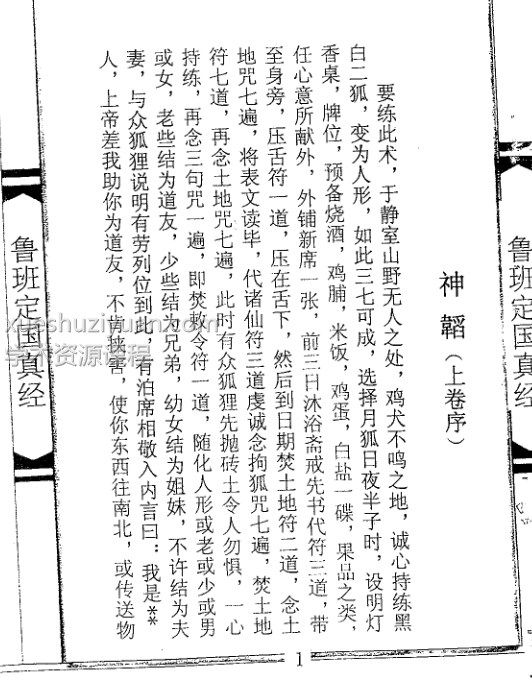 神韜（上卷序）
要练此术，于静室山野无人之处，鸡犬不鸣之地，诚心持练黑
白二狐，变为人形，如此三七可成，选择月狐日夜半子时，设明灯
香桌，牌位，预备烧酒，鸡脯，米饭，鸡蛋，白盐一碟，果品之类，
任心意所献外，外铺新席一张，前三日沐浴斋戒先书代符三道，带
至身旁，压舌符一道，压在舌下，然后到日期焚土地符二道，念土
地咒七遍，将表文读毕，代诸仙符三道虔诚念拘狐咒七遍，焚土地
符七道，再念土地咒七遍，此时有众狐狸先抛砖土令人勿惧，一心
持练，再念三句咒一遍，即焚敕令符一道，随化人形或老或少或男
或女，老些结为道友，少些结为兄弟，幼女结为姐妹，不许结为夫
妻，与众狐狸说明有劳列位到此，有泊席相敬入内言曰：我是**
人，上帝差我助你为道友，不肯挟害，使你东西往南北，或传送物
鲁班定国真经
鲁班定国真经
xueshuziyuan.com
学术资源课程
1